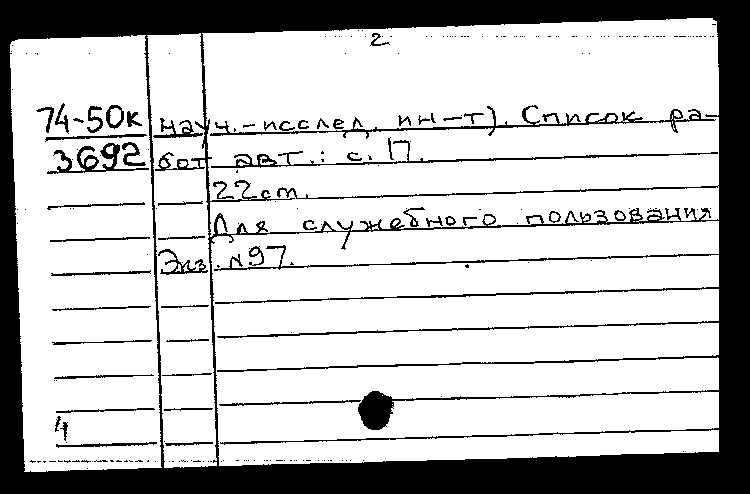 2
74-50к науч.-исслед. ин-т). Список ра-
3692 бот авт.: с. 17.
22 см.
Для служебного пользования
Экз. N97.
4